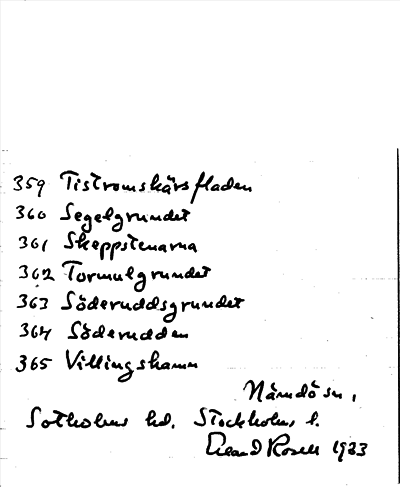 359 Tistromskärsfladen
360 Segelgrundet
361 Skeppstenarna
362 Tormulgrundet
363 Söderuddsgrundet
364 Söderudden
365 Villingshamn
Nämdö sn,
Sotholms hd. Stockholms l.
1933